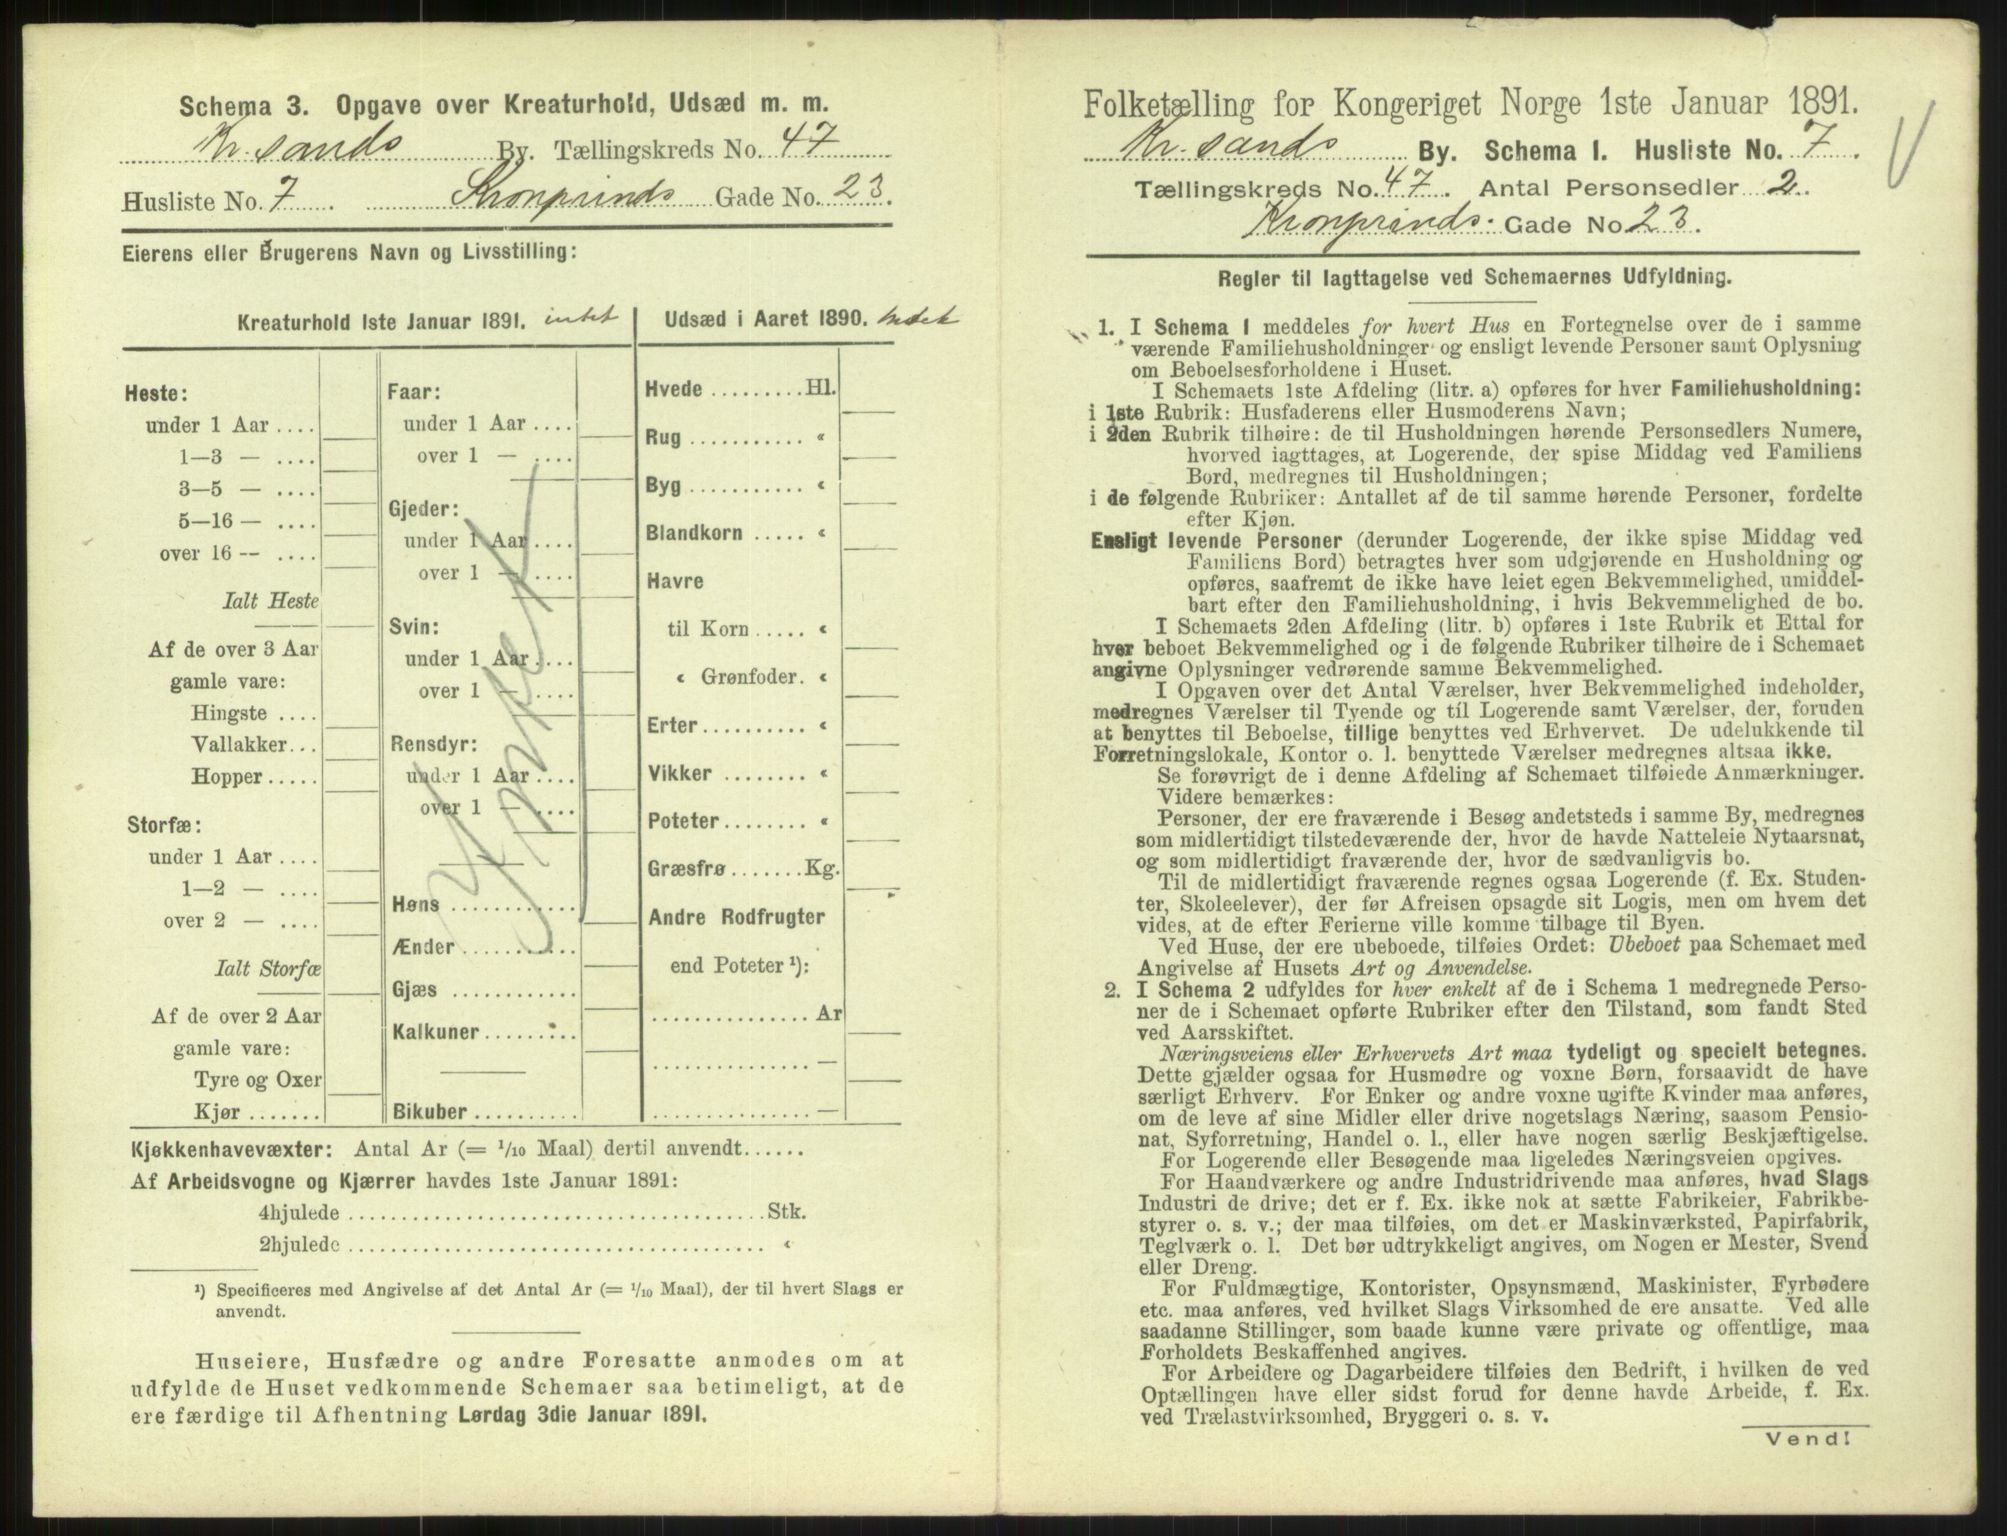 Schema 3. Opgave over Kreaturhold, Udsæd m. m.
Kr.sands By. Tællingskreds No. 47
Husliste No. 7 Kronprinds Gade No. 23.
Eierens eller Brugerens Navn og Livsstilling:
Kreaturhold 1ste Januar 1891. intet
Heste:
under 1 Aar ....
1—3 — ....
3—5 — ....
5—16 — ....
over 16 — ....
Ialt Heste
Af de over 3 Aar
gamle vare:
Hingste ....
Vallakker...
Hopper.....
Storfæ:
under 1 Aar ....
1—2 — ....
over 2 — ....
Ialt Storfæ
Af de over 2 Aar
gamle vare:
Tyre og Oxer
Kjør .......
Faar:
under 1 Aar ....
over 1 — ....
Gjeder:
under 1 Aar ....
over 1 — ....
Svin:
under 1 Aar ....
over 1 — ....
Rensdyr:
under 1 Aar ....
over 1 — ....
Høns ............
Ænder ...........
Gjæs ............
Kalkuner .........
Bikuber ..........
Udsæd i Aaret 1890. Intet
Hvede .........Hl.
Rug ........... «
Byg ........... «
Blandkorn ..... «
Havre
til Korn ..... «
« Grønfoder. «
Erter .......... «
Vikker ........ «
Poteter ........ «
Græsfrø .......Kg.
Andre Rodfrugter
end Poteter ¹):
............... Ar
............... —
............... —
Kjøkkenhavevæxter: Antal Ar (= 1/10 Maal) dertil anvendt......
Af Arbeidsvogne og Kjærrer havdes 1ste Januar 1891:
4hjulede ........................................Stk.
2hjulede ........................................ «
¹) Specificeres med Angivelse af det Antal Ar (= 1/10 Maal), der til hvert Slags er
anvendt.
Huseiere, Husfædre og andre Foresatte anmodes om at
udfylde de Huset vedkommende Schemaer saa betimeligt, at de
ere færdige til Afhentning Lørdag 3die Januar 1891.
Folketælling for Kongeriget Norge 1ste Januar 1891.
Kr.sands By. Schema 1. Husliste No. 7.
Tællingskreds No. 47. Antal Personsedler 2.
Kronprinds Gade No 23.
Regler til Iagttagelse ved Schemaernes Udfyldning.
1. I Schema 1 meddeles for hvert Hus en Fortegnelse over de i samme
værende Familiehusholdninger og ensligt levende Personer samt Oplysning
om Beboelsesforholdene i Huset.
I Schemaets 1ste Afdeling (litr. a) opføres for hver Familiehusholdning:
i 1ste Rubrik: Husfaderens eller Husmoderens Navn;
i 2den Rubrik tilhøire: de til Husholdningen hørende Personsedlers Numere,
hvorved iagttages, at Logerende, der spise Middag ved Familiens
Bord, medregnes til Husholdningen;
i de følgende Rubriker: Antallet af de til samme hørende Personer, fordelte
efter Kjøn.
Ensligt levende Personer (derunder Logerende, der ikke spise Middag ved
Familiens Bord) betragtes hver som udgjørende en Husholdning og
opføres, saafremt de ikke have leiet egen Bekvemmelighed, umiddel-
bart efter den Familiehusholdning, i hvis Bekvemmelighed de bo.
I Schemaets 2den Afdeling (litr. b) opføres i 1ste Rubrik et Ettal for
hver beboet Bekvemmelighed og i de følgende Rubriker tilhøire de i Schemaet
angivne Oplysninger vedrørende samme Bekvemmelighed.
I Opgaven over det Antal Værelser, hver Bekvemmelighed indeholder,
medregnes Værelser til Tyende og til Logerende samt Værelser, der, foruden
at benyttes til Beboelse, tillige benyttes ved Erhvervet. De udelukkende til
Forretningslokale, Kontor o. l. benyttede Værelser medregnes altsaa ikke.
Se forøvrigt de i denne Afdeling af Schemaet tilføiede Anmærkninger.
Videre bemærkes:
Personer, der ere fraværende i Besøg andetsteds i samme By, medregnes
som midlertidigt tilstedeværende der, hvor de havde Natteleie Nytaarsnat,
og som midlertidigt fraværende der, hvor de sædvanligvis bo.
Til de midlertidigt fraværende regnes ogsaa Logerende (f. Ex. Studen-
ter, Skoleelever), der før Afreisen opsagde sit Logis, men om hvem det
vides, at de efter Ferierne ville komme tilbage til Byen.
Ved Huse, der ere ubeboede, tilføies Ordet: Ubeboet paa Schemaet med
Angivelse af Husets Art og Anvendelse.
2. I Schema 2 udfyldes for hver enkelt af de i Schema 1 medregnede Perso-
ner de i Schemaet opførte Rubriker efter den Tilstand, som fandt Sted
ved Aarsskiftet.
Næringsveiens eller Erhvervets Art maa tydeligt og specielt betegnes.
Dette gjælder ogsaa for Husmødre og voxne Børn, forsaavidt de have
særligt Erhverv. For Enker og andre voxne ugifte Kvinder maa anføres,
om de leve af sine Midler eller drive nogetslags Næring, saasom Pensio-
nat, Syforretning, Handel o. l., eller have nogen særlig Beskjæftigelse.
For Logerende eller Besøgende maa ligeledes Næringsveien opgives.
For Haandværkere og andre Industridrivende maa anføres, hvad Slags
Industri de drive; det er f. Ex. ikke nok at sætte Fabrikeier, Fabrikbe-
styrer o. s. v.; der maa tilføies, om det er Maskinværksted, Papirfabrik,
Teglværk o. l. Det bør udtrykkeligt angives, om Nogen er Mester, Svend
eller Dreng.
For Fuldmægtige, Kontorister, Opsynsmænd, Maskinister, Fyrbødere
etc. maa anføres, ved hvilket Slags Virksomhed de ere ansatte. Ved alle
saadanne Stillinger, som baade kunne være private og offentlige, maa
Forholdets Beskaffenhed angives.
For Arbeidere og Dagarbeidere tilføies den Bedrift, i hvilken de ved
Optællingen have eller sidst forud for denne havde Arbeide, f. Ex.
ved Trælastvirksomhed, Bryggeri o. s. v.
Vend!